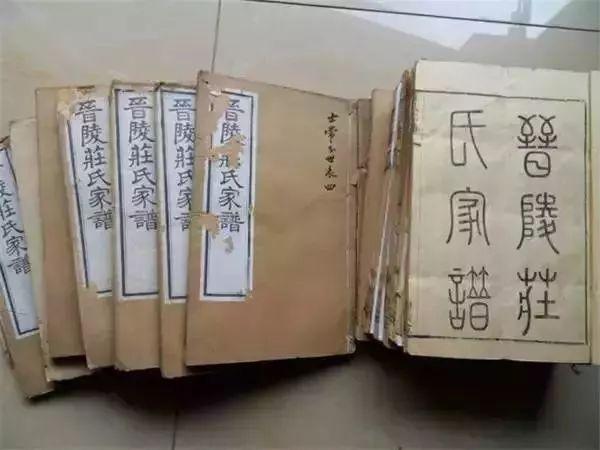 陵莊氏家譜
晉陵莊氏家譜
晉陵莊氏家譜
晉陵莊氏家譜
晉陵莊氏家譜
士常公世表四
晉陵莊
氏家譜